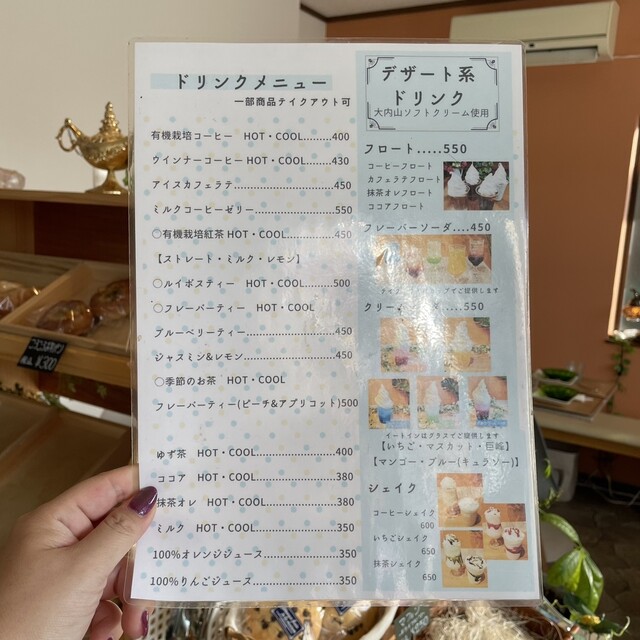 ドリンクメニュー
一部商品テイクアウト可
有機栽培コーヒー HOT・COOL.........400
ウインナーコーヒー HOT・COOL.........430
アイスカフェラテ..................450
ミルクコーヒーゼリー..................550
〇有機栽培紅茶 HOT・COOL............450
【ストレート・ミルク・レモン】
〇ルイボスティー HOT・COOL.........500
〇フレーバーティー HOT・COOL
ブルーベリーティー..................450
ジャスミン&レモン..................450
〇季節のお茶 HOT・COOL
フレーバーティー(ピーチ&アプリコット)500
ゆず茶 HOT・COOL..................400
ココア HOT・COOL..................380
抹茶オレ HOT・COOL..................380
ミルク HOT・COOL..................350
100%オレンジジュース..................350
100%りんごジュース..................350
デザート系
ドリンク
大内山ソフトクリーム使用
フロート.....550
コーヒーフロート
カフェラテフロート
抹茶オレフロート
ココアフロート
フレーバーソーダ....450
クリ
550
イートインはグラスでご提供します
【いちご・マスカット・巨峰】
【マンゴー・ブルー(キュラソー)】
シェイク
コーヒーシェイク
600
いちごシェイク
650
抹茶シェイク
650
¥300